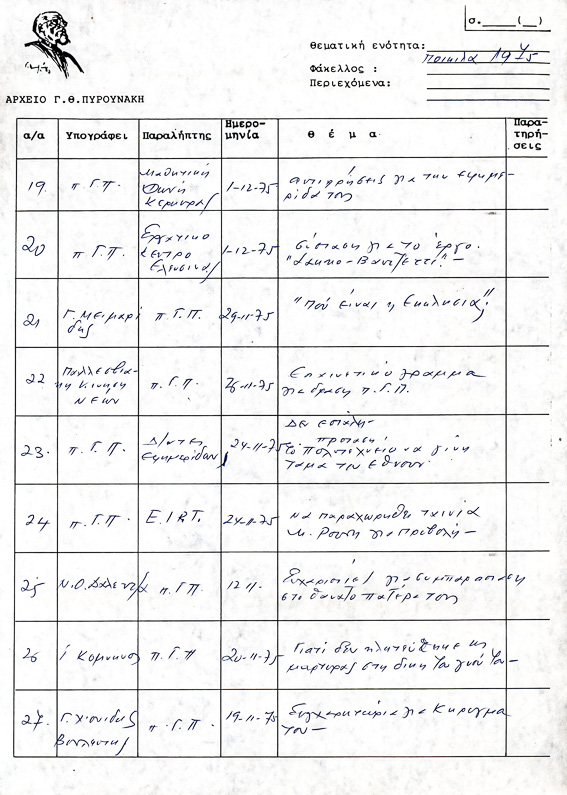 σ.____(__)
Θεματική ενότητα: ποικιλα 1975
Φάκελλος :
Περιεχόμενα:
ΑΡΧΕΙΟ Γ.Θ.ΠΥΡΟΥΝΑΚΗ
α/α Υπογράφει Παραλήπτης Ημερο-μηνία θ έ μ α Παρα-τηρή-σεις
19. π.Γ.Π. Μαθητική Φωνή Κερκυρας 1-12-75 αντιρρήσεις για την εφημε-
ρίδα τους
20 π.Γ.Π. Εργατικο Κεντρο Ελευσινας 1-12-75 σύσταση για το έργο.
"Σακκο-Βαντζεττι".-
21 Γ. Μειμαρί
δης π.Γ.Π. 29-11-75 "Πού είναι η Εκκλησία";
22 Παλλεσβια-
κη Κινηση
ΝΕΩΝ π.Γ.Π. 26-11-75 Επαινετικό γραμμα
για δραση π.Γ.Π.
23. π.Γ.Π. Δ/ντες
Εφημερίδων 24-11-75 Δεν εσταλη-
προταση
το πολυτεχνειο να γίνη
ταμα του Εθνους.
24 π.Γ.Π. Ε.Ι.Ρ.Τ. 24-11-75 να παραχωρηθει ταινία
κ. Ρουση για προβολή-
25 π.Γ.Π. 12-11- Ευχαριστίες για συμπαρασταση
στο θανατο πατέρα του
26 Ι Κομνηνος π.Γ.Π 20-11-75 Γιατί δεν κλητεύθηκε ως
μαρτυρας στη δικη του γιού του-
27. Γ. Χιονιδης
Βουλευτης π.Γ.Π. 19-11-75 Συγχαρητήρια για Κηρυγμα
του-